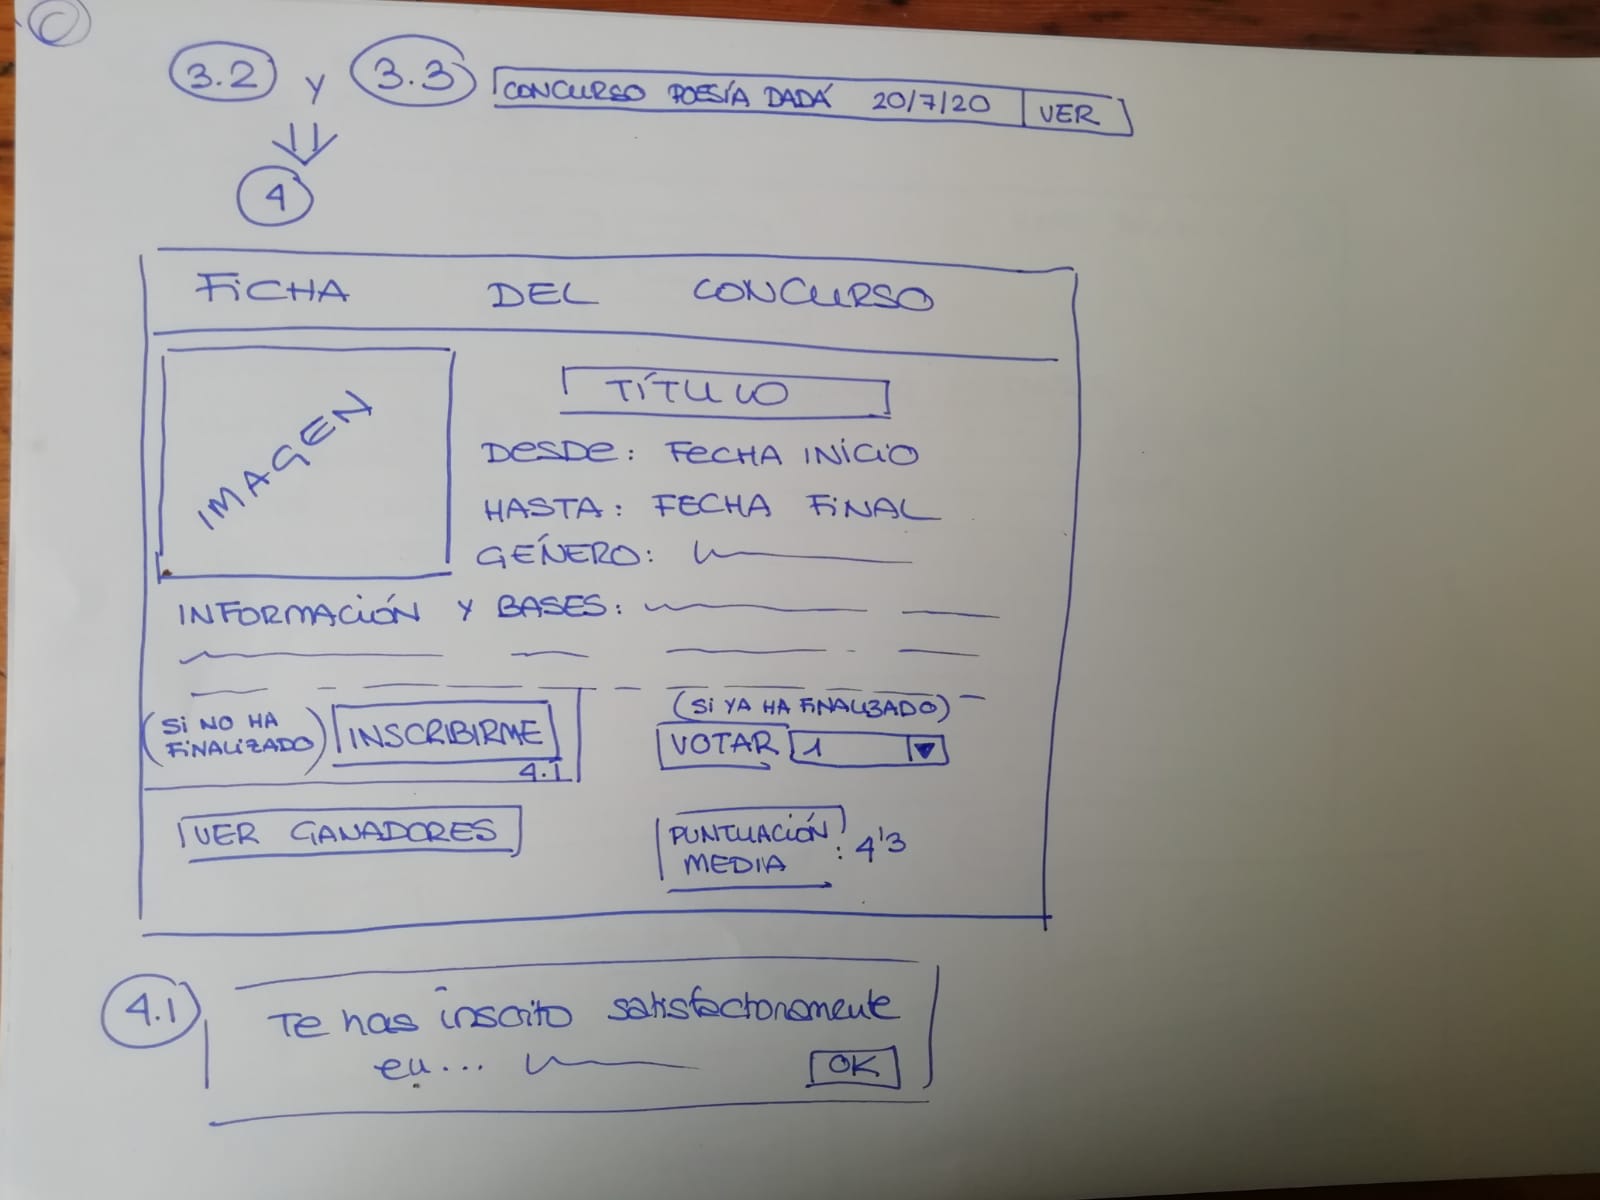 3.2 y 3.3 CONCURSO POESÍA DADÁ 20/7/20 VER
4
FICHA DEL CONCURSO
IMAGEN
TÍTULO
DESDE: FECHA INICIO
HASTA: FECHA FINAL
GÉNERO:
INFORMACIÓN Y BASES:
(SI NO HA
FINALIZADO)
INSCRIBIRME
4.1
(SI YA HA FINALIZADO)
VOTAR 1
VER GANADORES
PUNTUACIÓN
MEDIA : 4'3
4.1
Te has inscrito satisfactoriamente
en...
OK